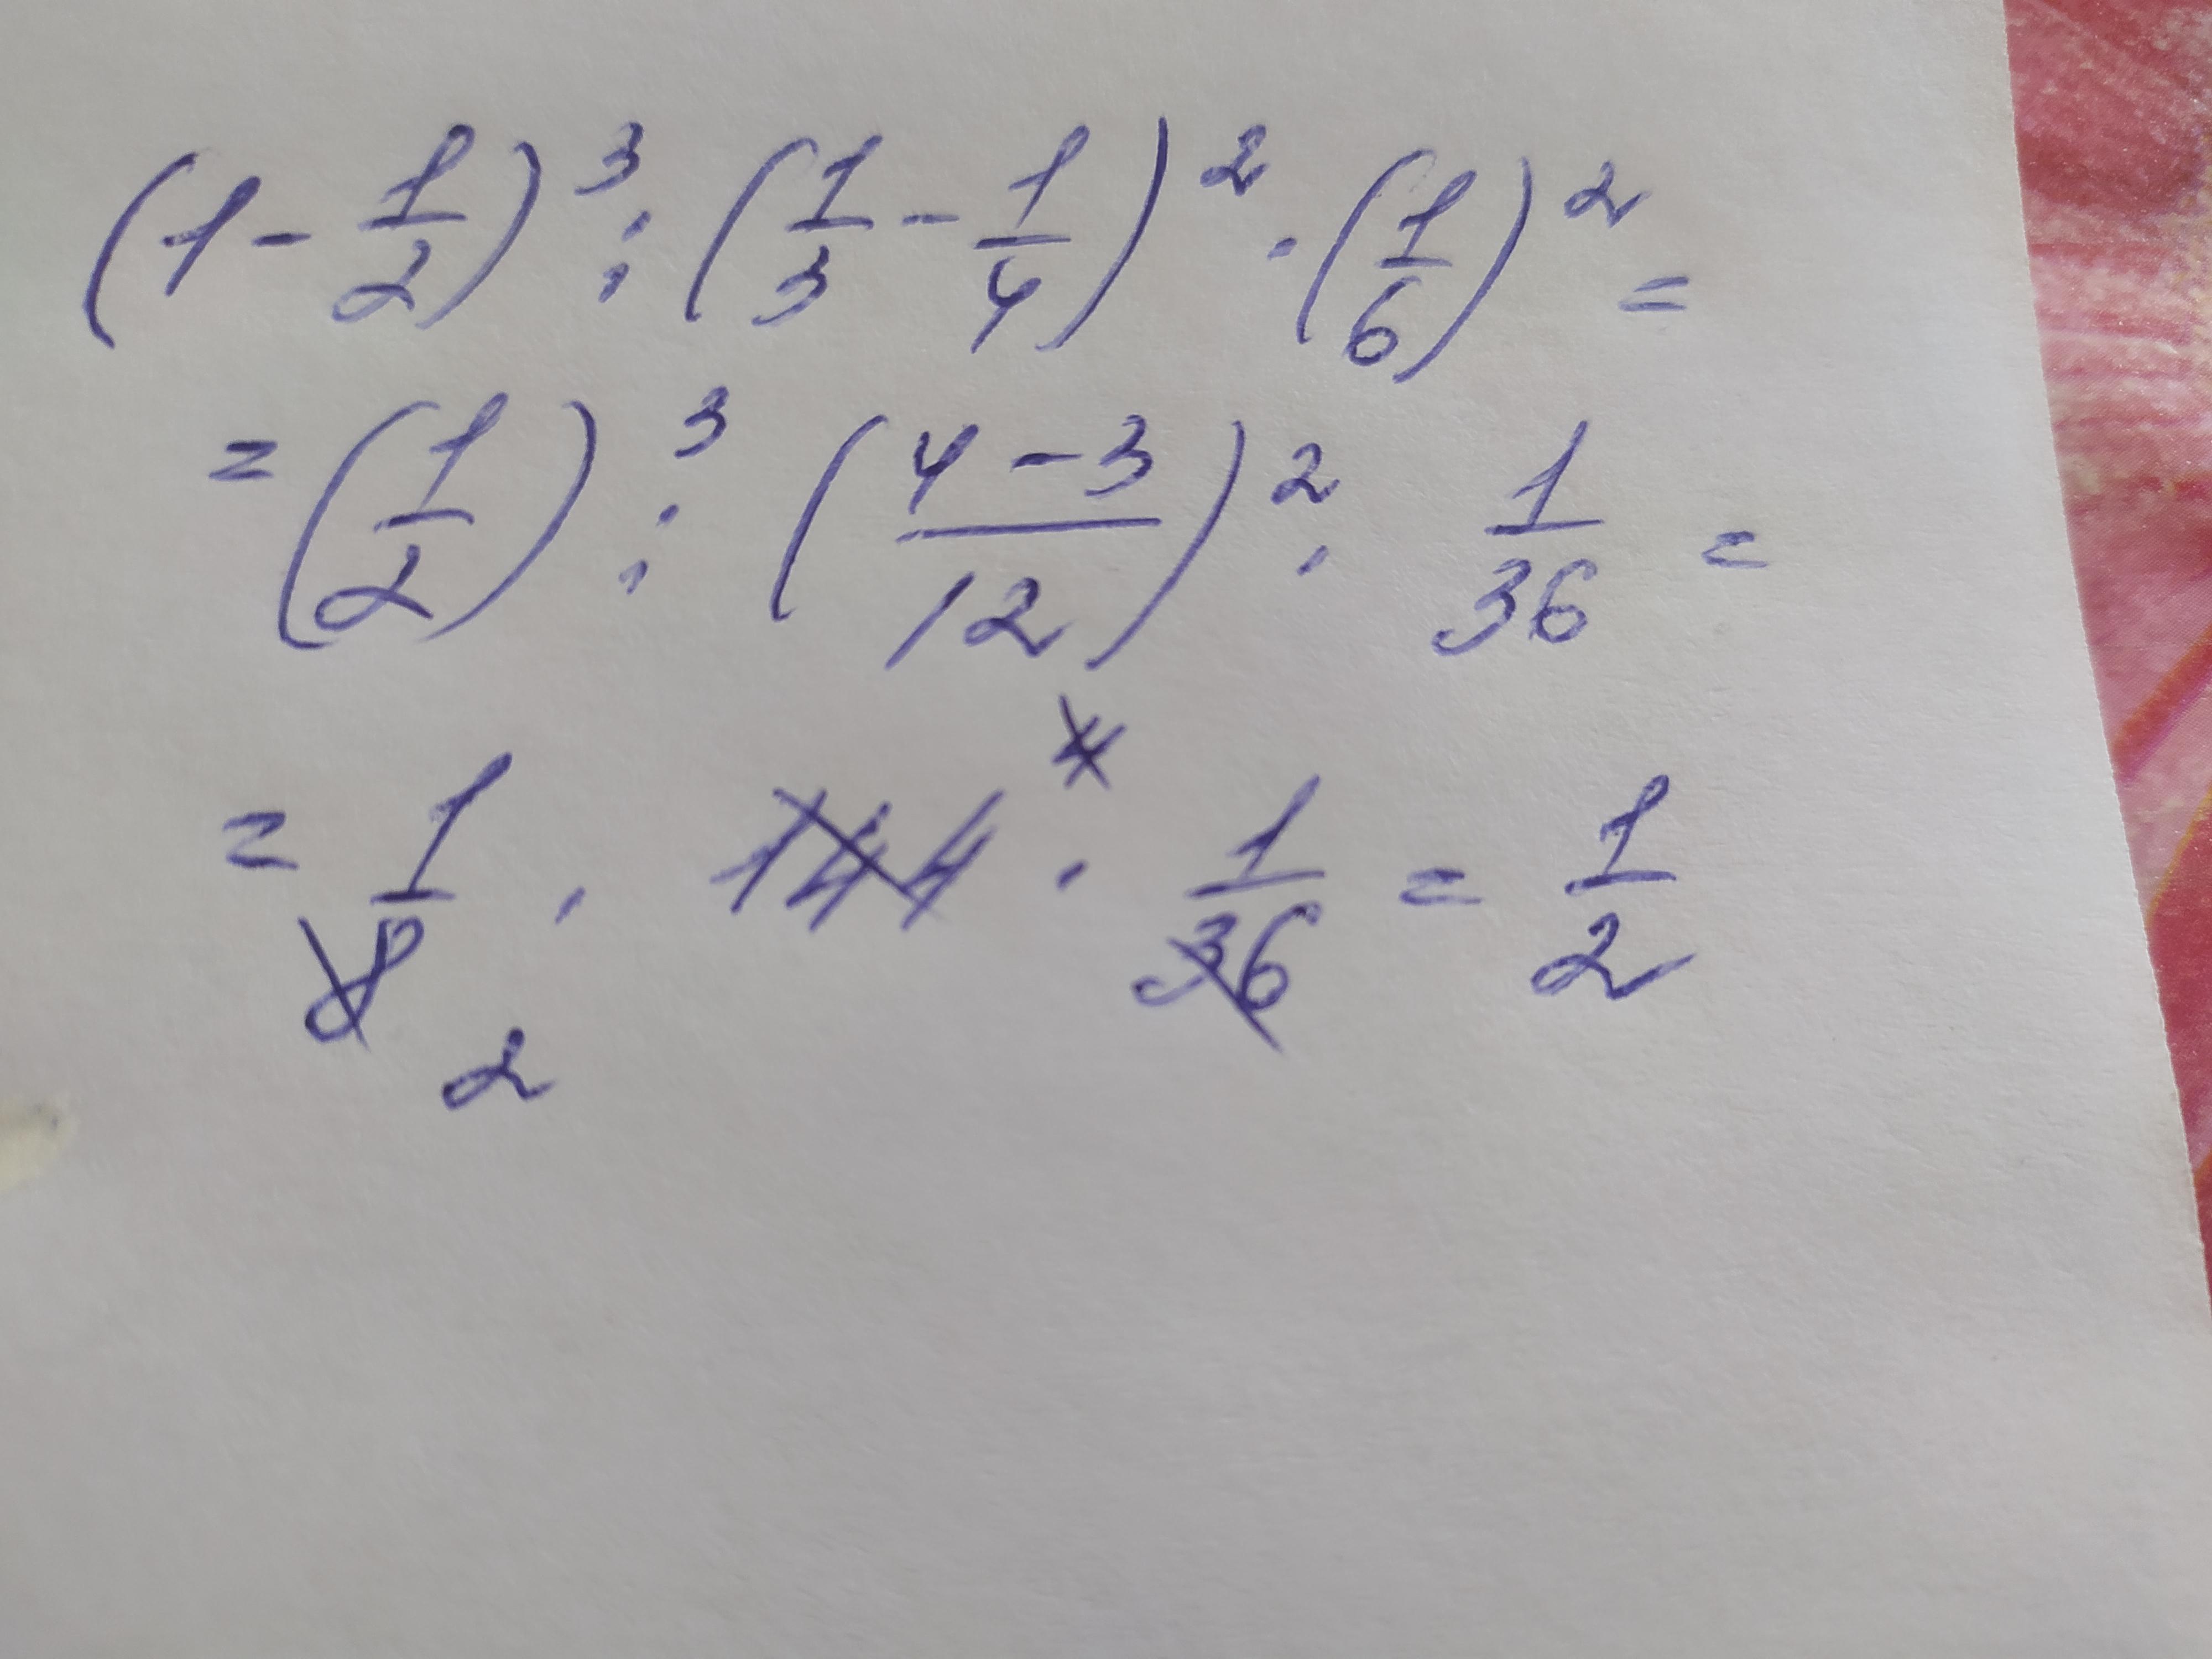 (1 - 1/2)³ : (1/3 - 1/4)² · (1/6)² =
= (1/2)³ : ((4 - 3)/12)² · 1/36 =
= 1/8 2 · 144 4 · 1/36 = 1/2